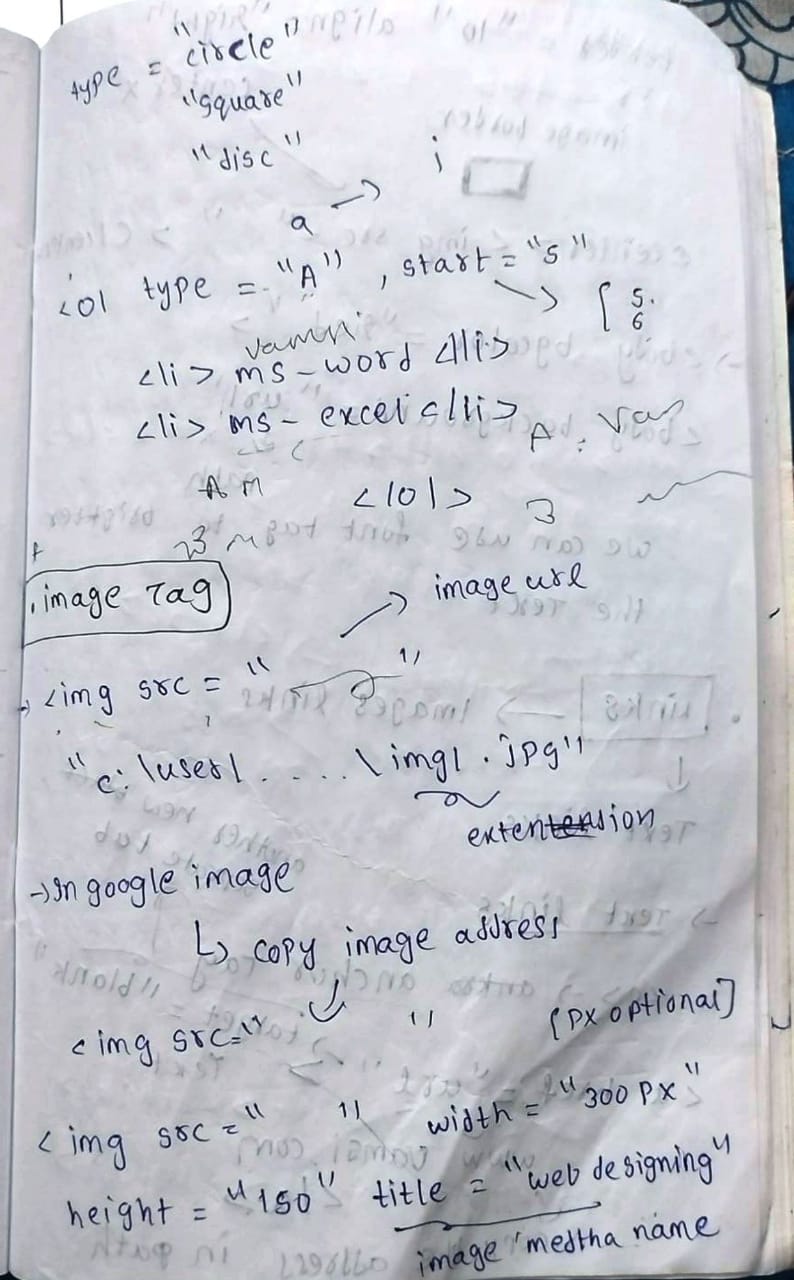 type = "circle"
"square"
"disc"
i
a →
<ol type = "A" , start = "5" → [ 5.
6
vamsi
<li> ms-word </li>
<li> ms-excel </li>
A
</ol>
3
image Tag
→ image url
<img src = " "
"c:\user\.....\img1.jpg"
extension
→ In google image
↳ copy image address
<img src=" " [px optional]
<img src = " " width = "300 px"
height = "150" title = "web designing"
image medtha name